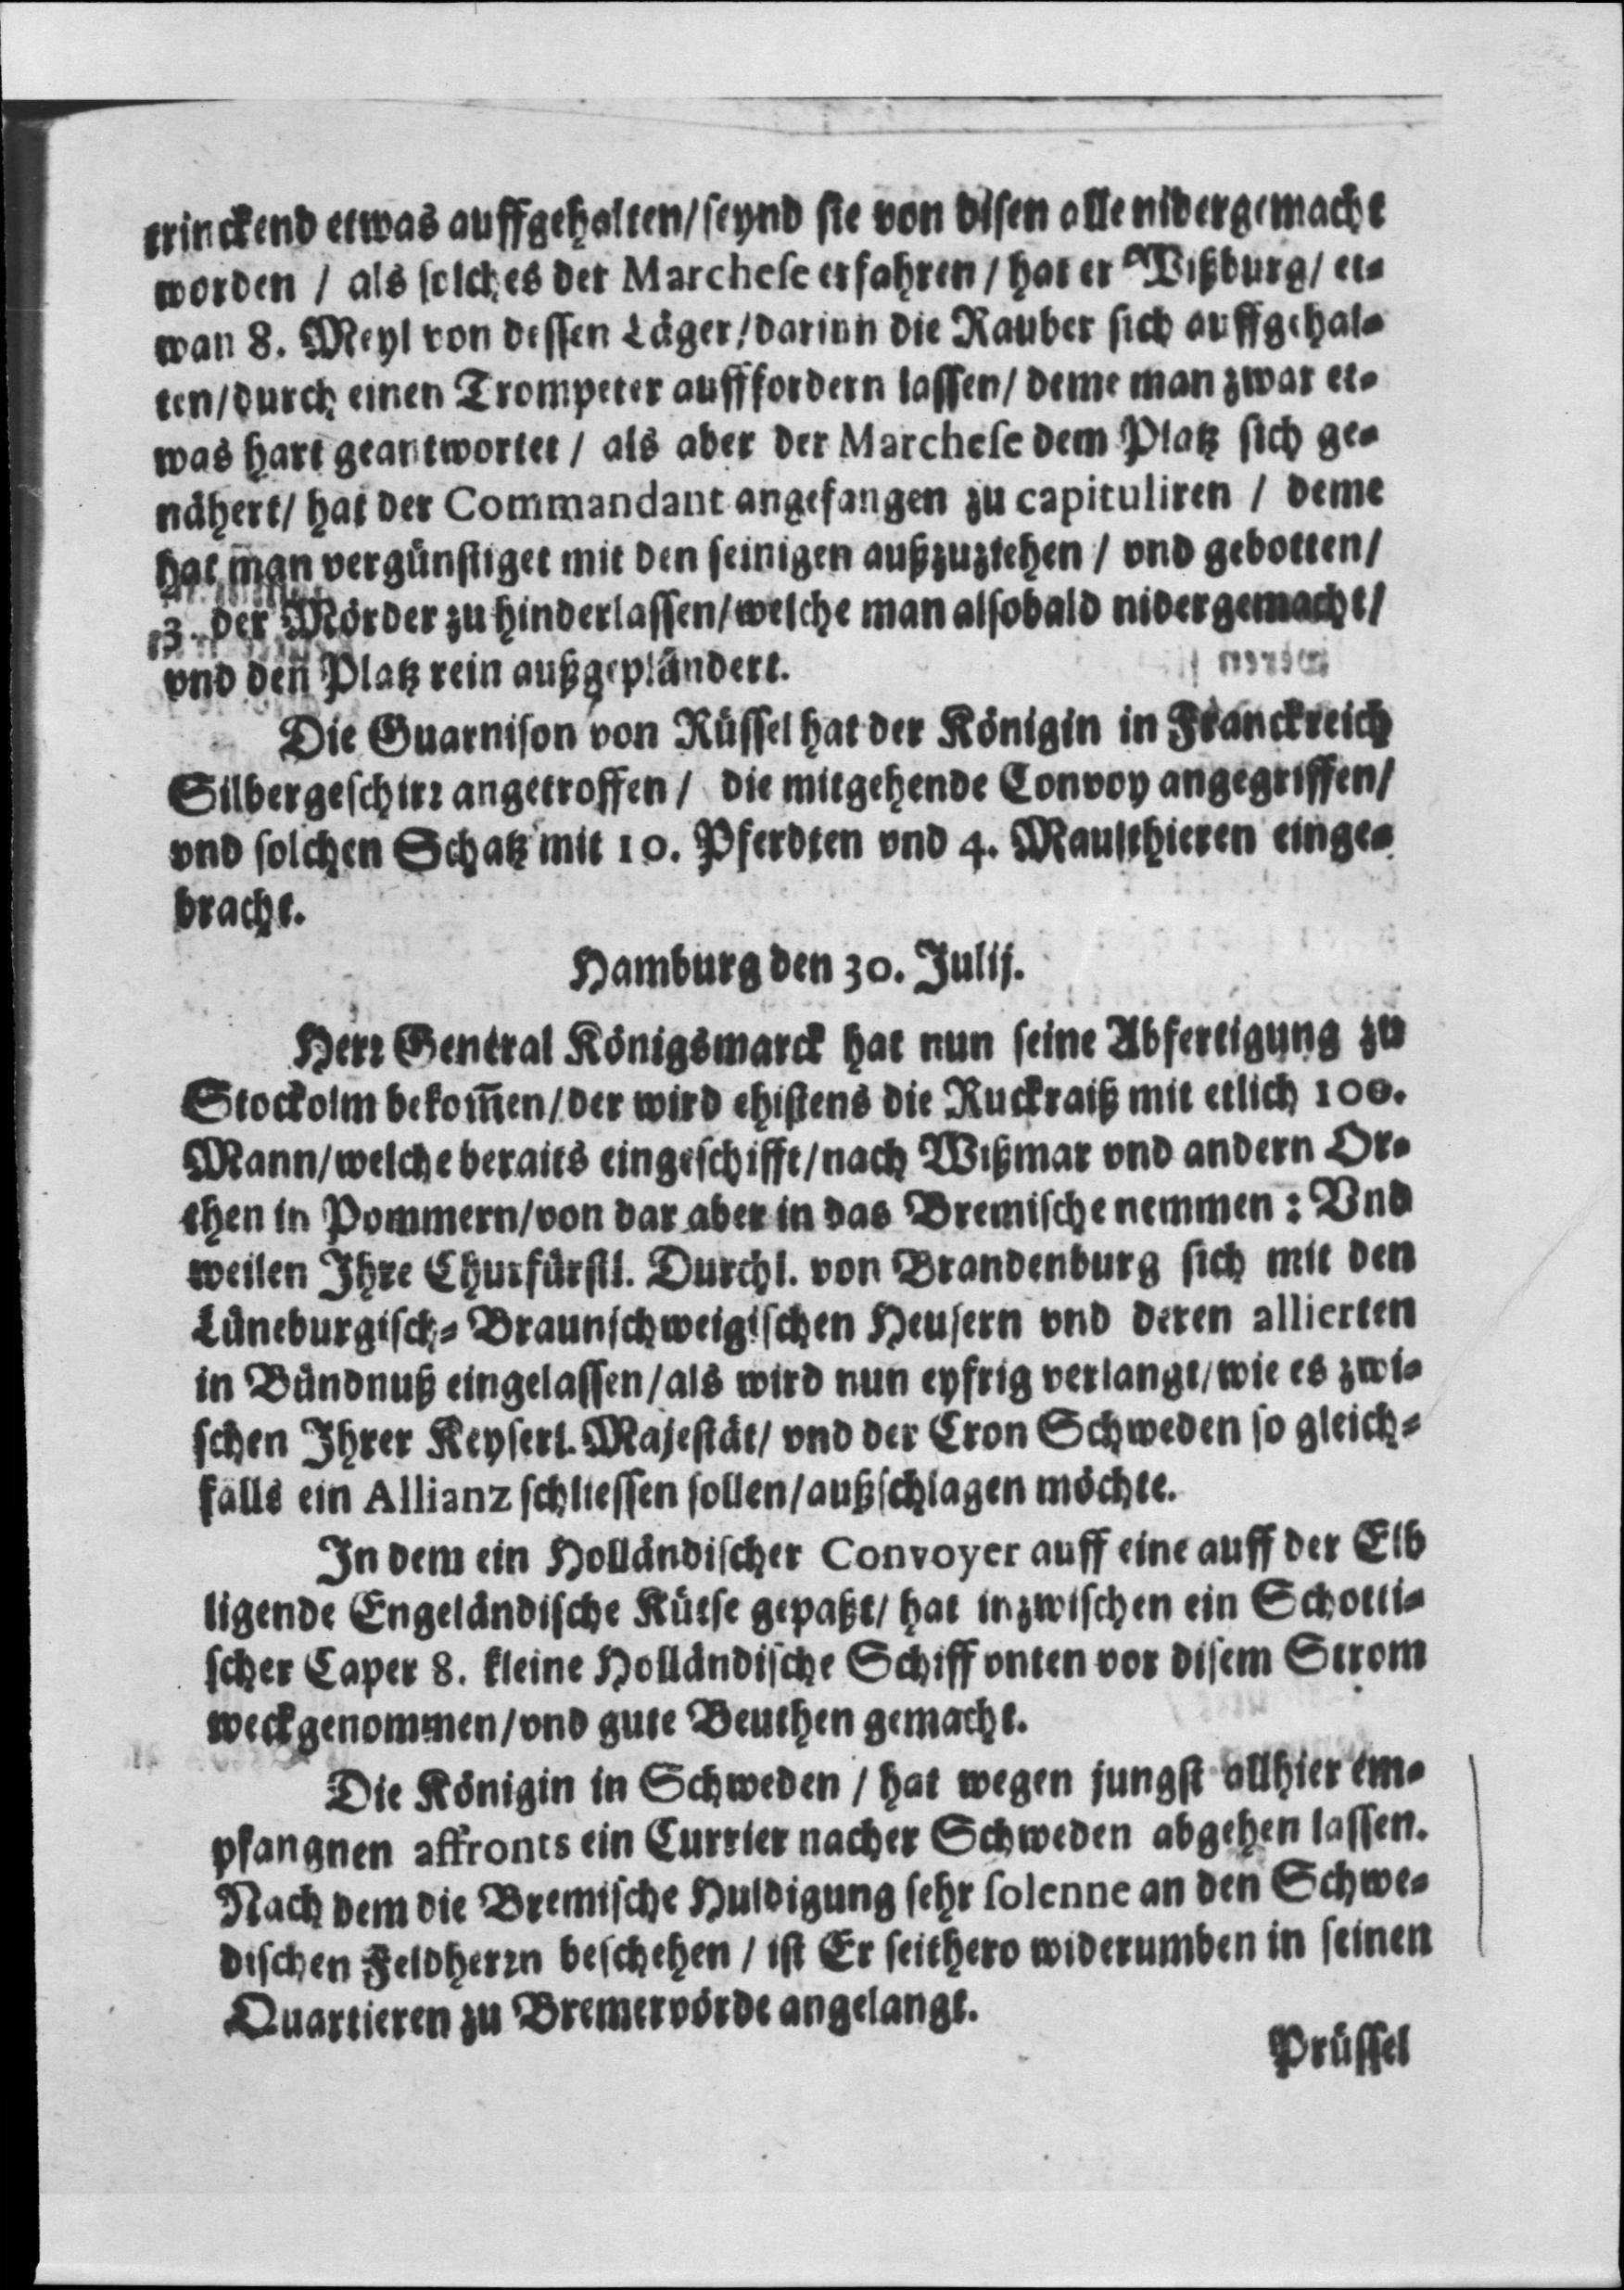 trinckend etwas auffgehalten/ seynd sie von disen alle nidergemacht
worden / als solches der Marchese erfahren / hat er Wißburg/ et-
wan 8. Meyl von dessen Läger/ darinn die Rauber sich auffgehal-
ten/ durch einen Trompeter aufffordern lassen/ deme man zwar et-
was hart geantwortet / als aber der Marchese dem Platz sich ge-
nähert/ hat der Commandant angefangen zu capituliren / deme
hat man vergünstiget mit den seinigen außzuziehen / vnd gebotten/
der Mörder zu hinderlassen/ welche man alsobald nidergemacht/
vnd den Platz rein außgeplündert.
Die Guarnison von Rüssel hat der Königin in Franckreich
Silbergeschirr angetroffen / die mitgehende Convoy angegriffen/
vnd solchen Schatz mit 10. Pferdten vnd 4. Maulthieren einge-
bracht.
Hamburg den 30. Julij.
Herr General Königsmarck hat nun seine Abfertigung zu
Stockolm bekom̅en/ der wird ehistens die Ruckraiß mit etlich 100.
Mann/ welche beraits eingeschifft/ nach Wißmar vnd andern Or-
then in Pommern/ von dar aber in das Bremische nemmen: Vnd
weilen Ihre Churfürstl. Durchl. von Brandenburg sich mit den
Lüneburgisch- Braunschweigischen Heusern vnd deren allierten
in Bündnuß eingelassen/ als wird nun eyfrig verlangt/ wie es zwi-
schen Ihrer Keyserl. Majestät/ vnd der Cron Schweden so gleich-
falls ein Allianz schliessen sollen/ außschlagen möchte.
In dem ein Holländischer Convoyer auff eine auff der Elb
ligende Engeländische Kütse gepaßt/ hat inzwischen ein Schotti-
scher Caper 8. kleine Holländische Schiff vnten vor disem Strom
weckgenommen/ vnd gute Beuthen gemacht.
Die Königin in Schweden / hat wegen jungst allhier em-
pfangnen affronts ein Currier nacher Schweden abgehen lassen.
Nach dem die Bremische Huldigung sehr solenne an den Schwe-
dischen Feldherrn beschehen / ist Er seithero widerumben in seinen
Quartieren zu Bremervörde angelangt.
Prüssel